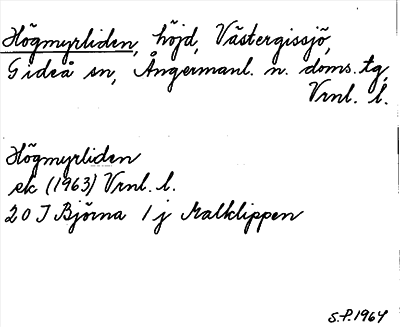 Högmyrliden, höjd, Västergissjö,
Gideå sn, Ångermanl. n. doms. tg,
Vrnl. l.
Högmyrliden
ek (1963) Vrnl. l.
20 J Björna 1 j Malklippen
S.P. 1964